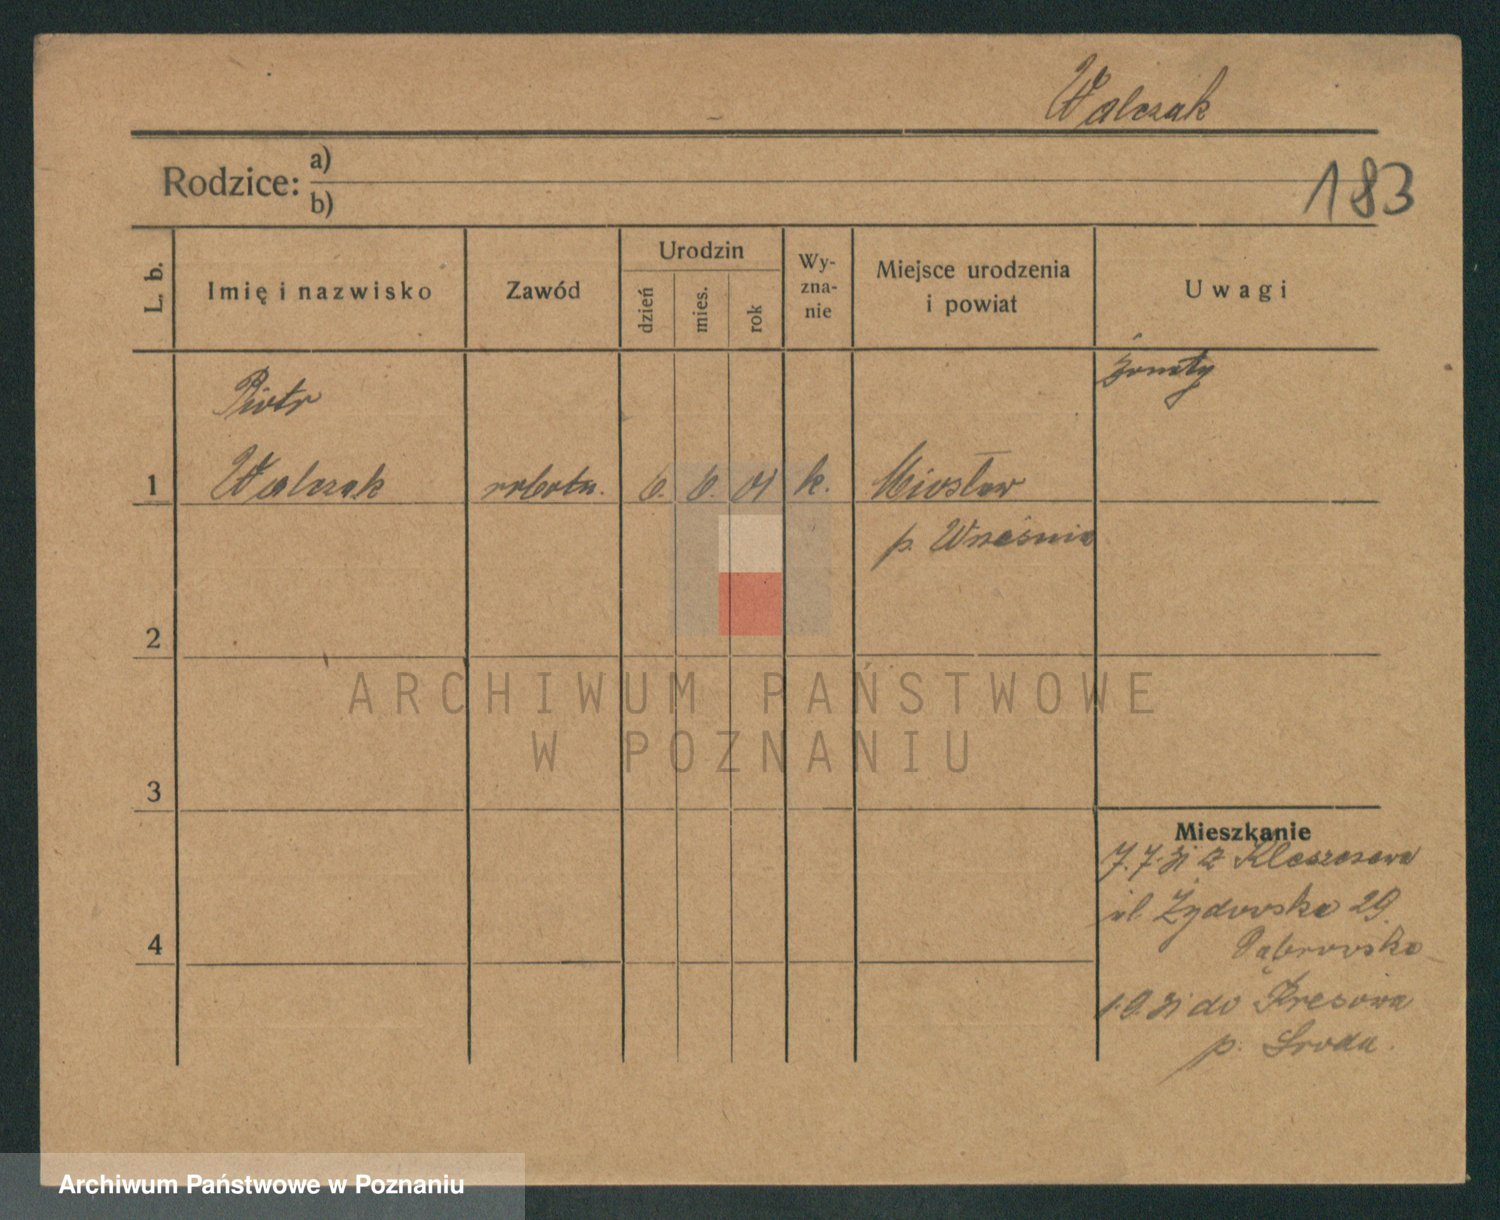 Walczak
Rodzice: a)
b)
183
L. b.
Imię i nazwisko
Zawód
Urodzin
dzień
mies.
rok
Wy-
zna-
nie
Miejsce urodzenia
i powiat
Uwagi
żonaty
Piotr
1 Walczak robotn. 6. 6. 01 k. Miosław
p. Września
2
ARCHIWUM PAŃSTWOWE
W POZNANIU
3
Mieszkanie
7.7.31 z
ul. Żydowska 29
4
Dąbrowska
31 do Kresowa
p. Środa.
Archiwum Państwowe w Poznaniu